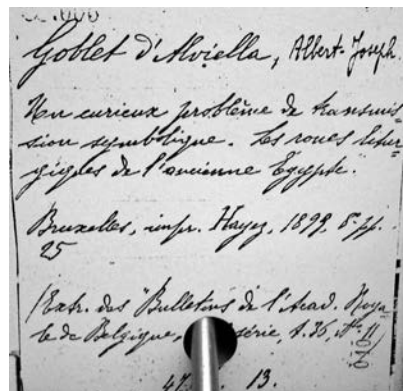 Goblet d'Alviella, Albert-Joseph.
Un curieux problème de transmis-
sion symbolique. Les roues litur-
giques de l'ancienne Egypte.
Bruxelles, impr. Hayez, 1899, 8° pp.
25
(Extr. des "Bulletins de l'Acad. Roya-
le de Belgique, série, t. 36, N° 11)
47 13.